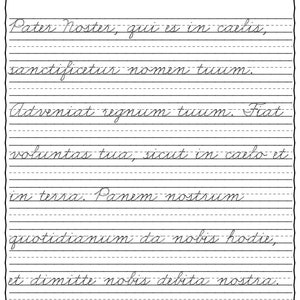 Pater Noster, qui es in caelis,
sanctificetur nomen tuum.
Adveniat regnum tuum. Fiat
voluntas tua, sicut in caelo et
in terra. Panem nostrum
quotidianum da nobis hodie,
et dimitte nobis debita nostra.